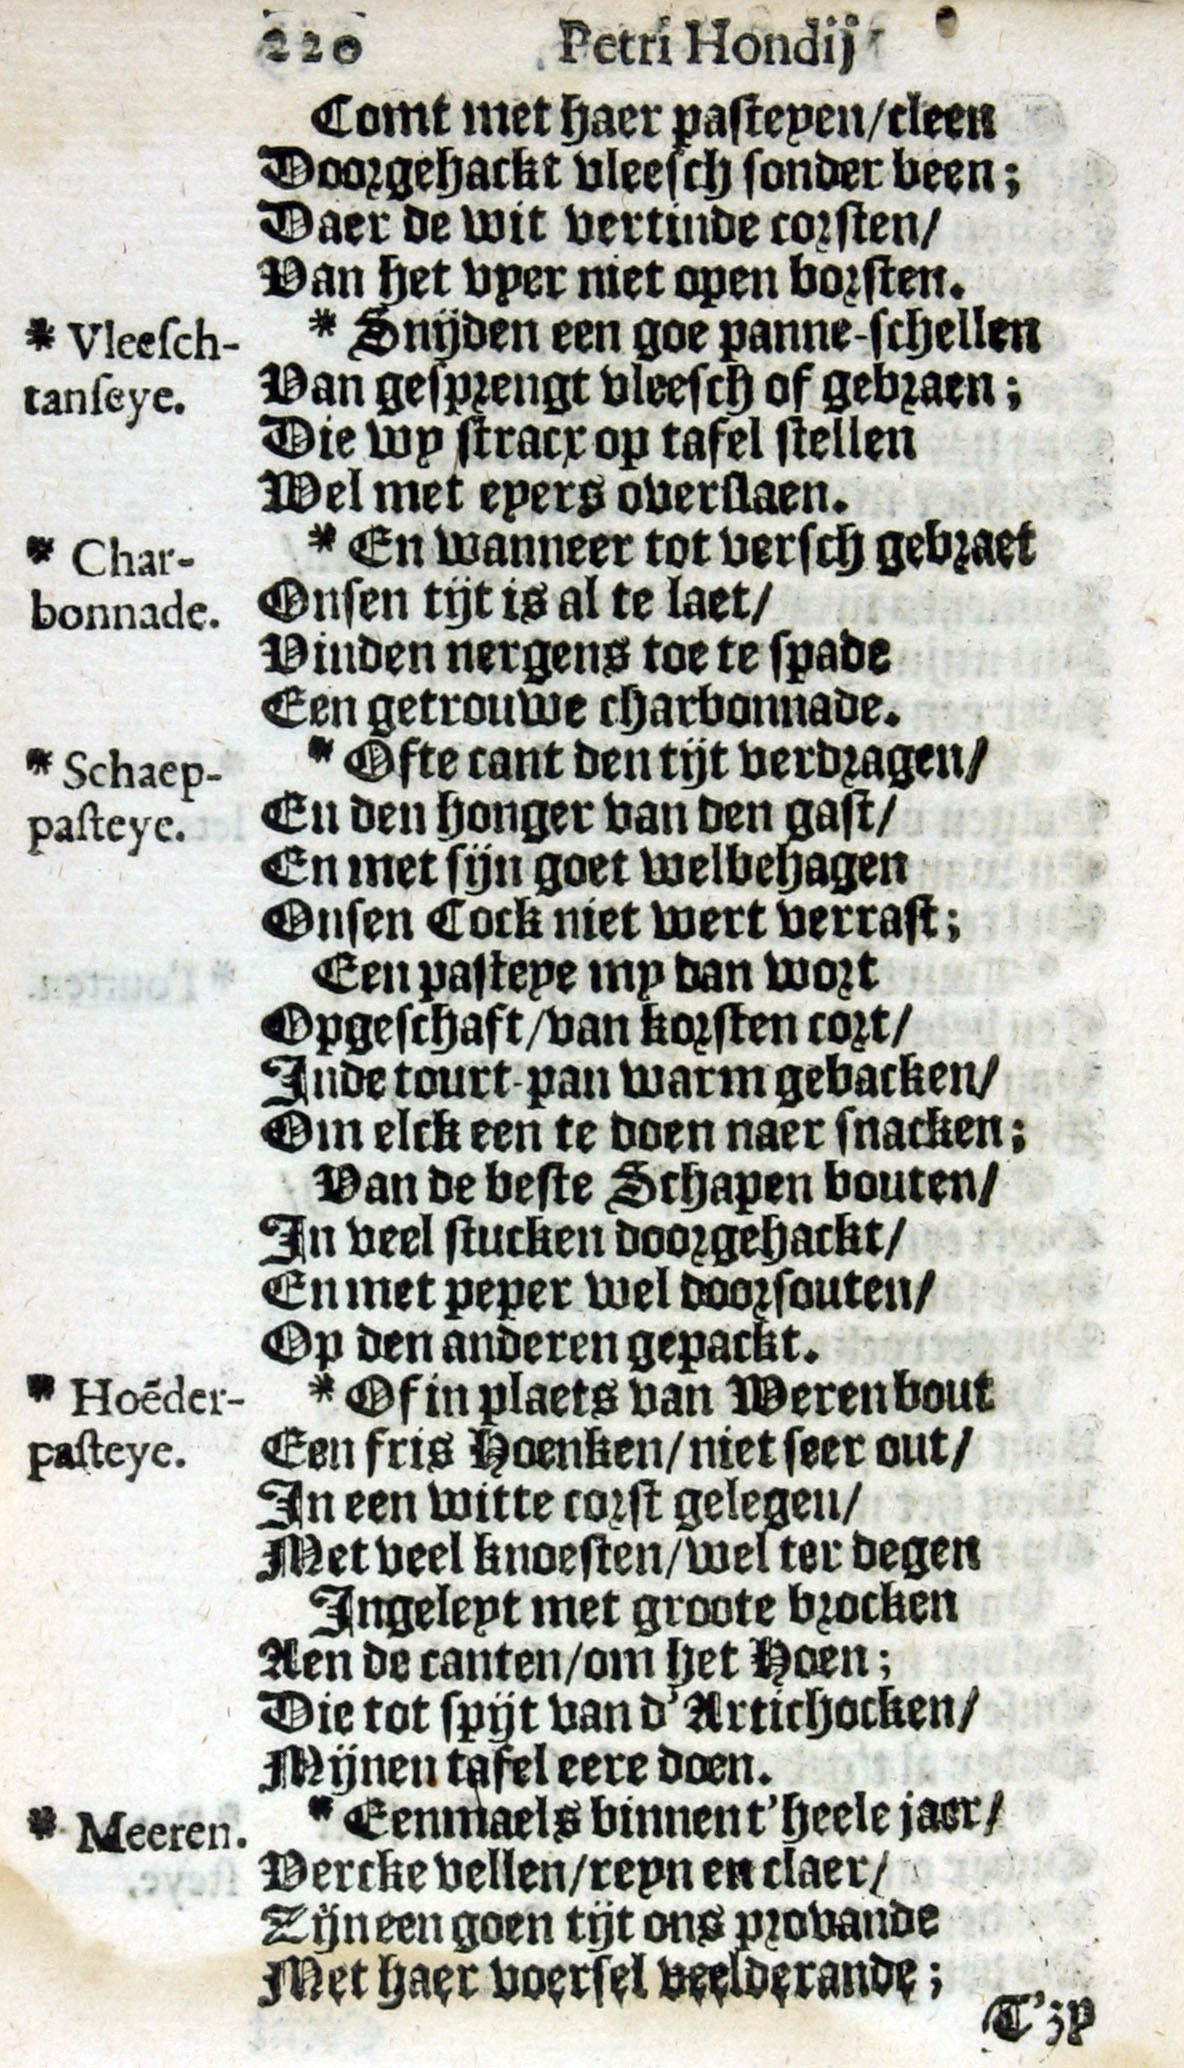 220 Petri Hondij
Comt met haer pasteyen/cleen
Doorgehackt vleesch sonder been;
Daer de wit vertinde corsten/
Van het vyer niet open borsten.
* Vleesch-
tanseye.
* Snijden een goe panne-schellen
Van gesprengt vleesch of gebraen;
Die wy stracx op tafel stellen
Wel met eyers overslaen.
* Char-
bonnade.
* En wanneer tot versch gebraet
Onsen tijt is al te laet/
Vinden nergens toe te spade
Een getrouwe charbonnade.
* Schaep-
pasteye.
* Ofte cant den tijt verdragen/
En den honger van den gast/
En met sijn goet welbehagen
Onsen Cock niet wert verrast;
Een pasteye my dan wort
Opgeschaft/van korsten cort/
Inde tourt-pan warm gebacken/
Om elck een te doen naer snacken;
Van de beste Schapen bouten/
In veel stucken doorgehackt/
En met peper wel doorsouten/
Op den anderen gepackt.
* Hoēder-
pasteye.
* Of in plaets van Weren bout
Een fris Hoenken/niet seer out/
In een witte corst gelegen/
Met veel knoesten/wel ter degen
Ingeleyt met groote brocken
Aen de canten/om het Hoen;
Die tot spijt van d'Artichocken/
Mijnen tafel eere doen.
* Meeren.
* Eenmaels binnen t'heele jaer/
Vercke vellen/reyn en claer/
Zijn een goen tijt ons provande
Met haer voersel veelderande;
T'zy